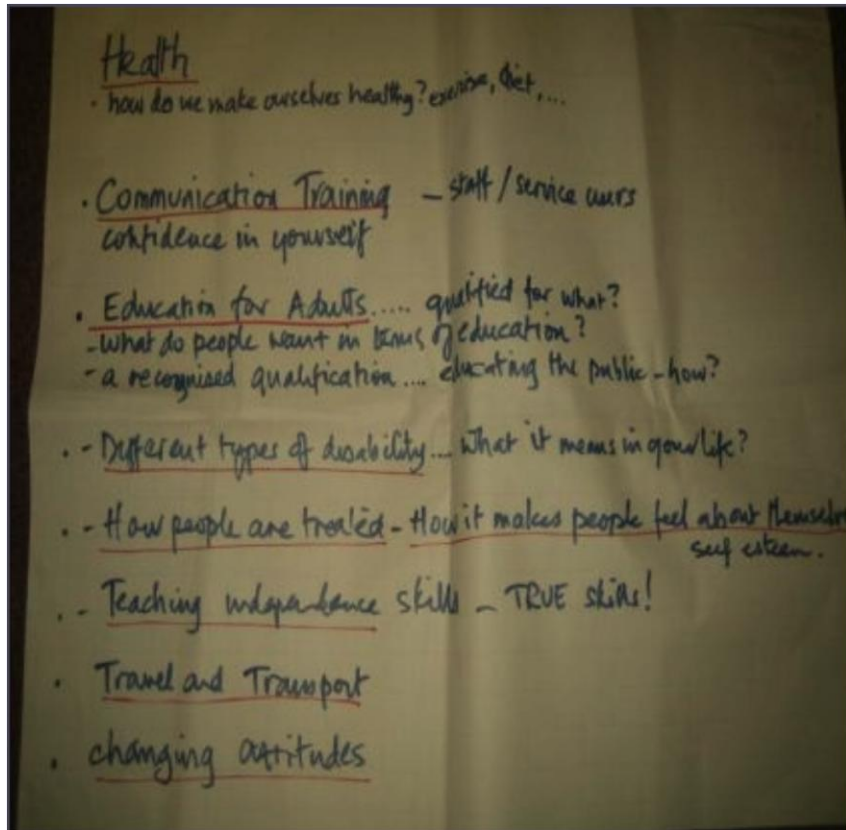 Health
· how do we make ourselves healthy? exercise, diet, ...
· Communication Training – staff / service users
confidence in yourself
· Education for Adults ..... qualified for what?
- what do people want in terms of education?
- a recognised qualification .... educating the public – how?
· - Different types of disability ... What it means in your life?
· - How people are treated – How it makes people feel about themselve
self esteem.
· - Teaching independence skills – TRUE skills!
· Travel and Transport
· changing attitudes